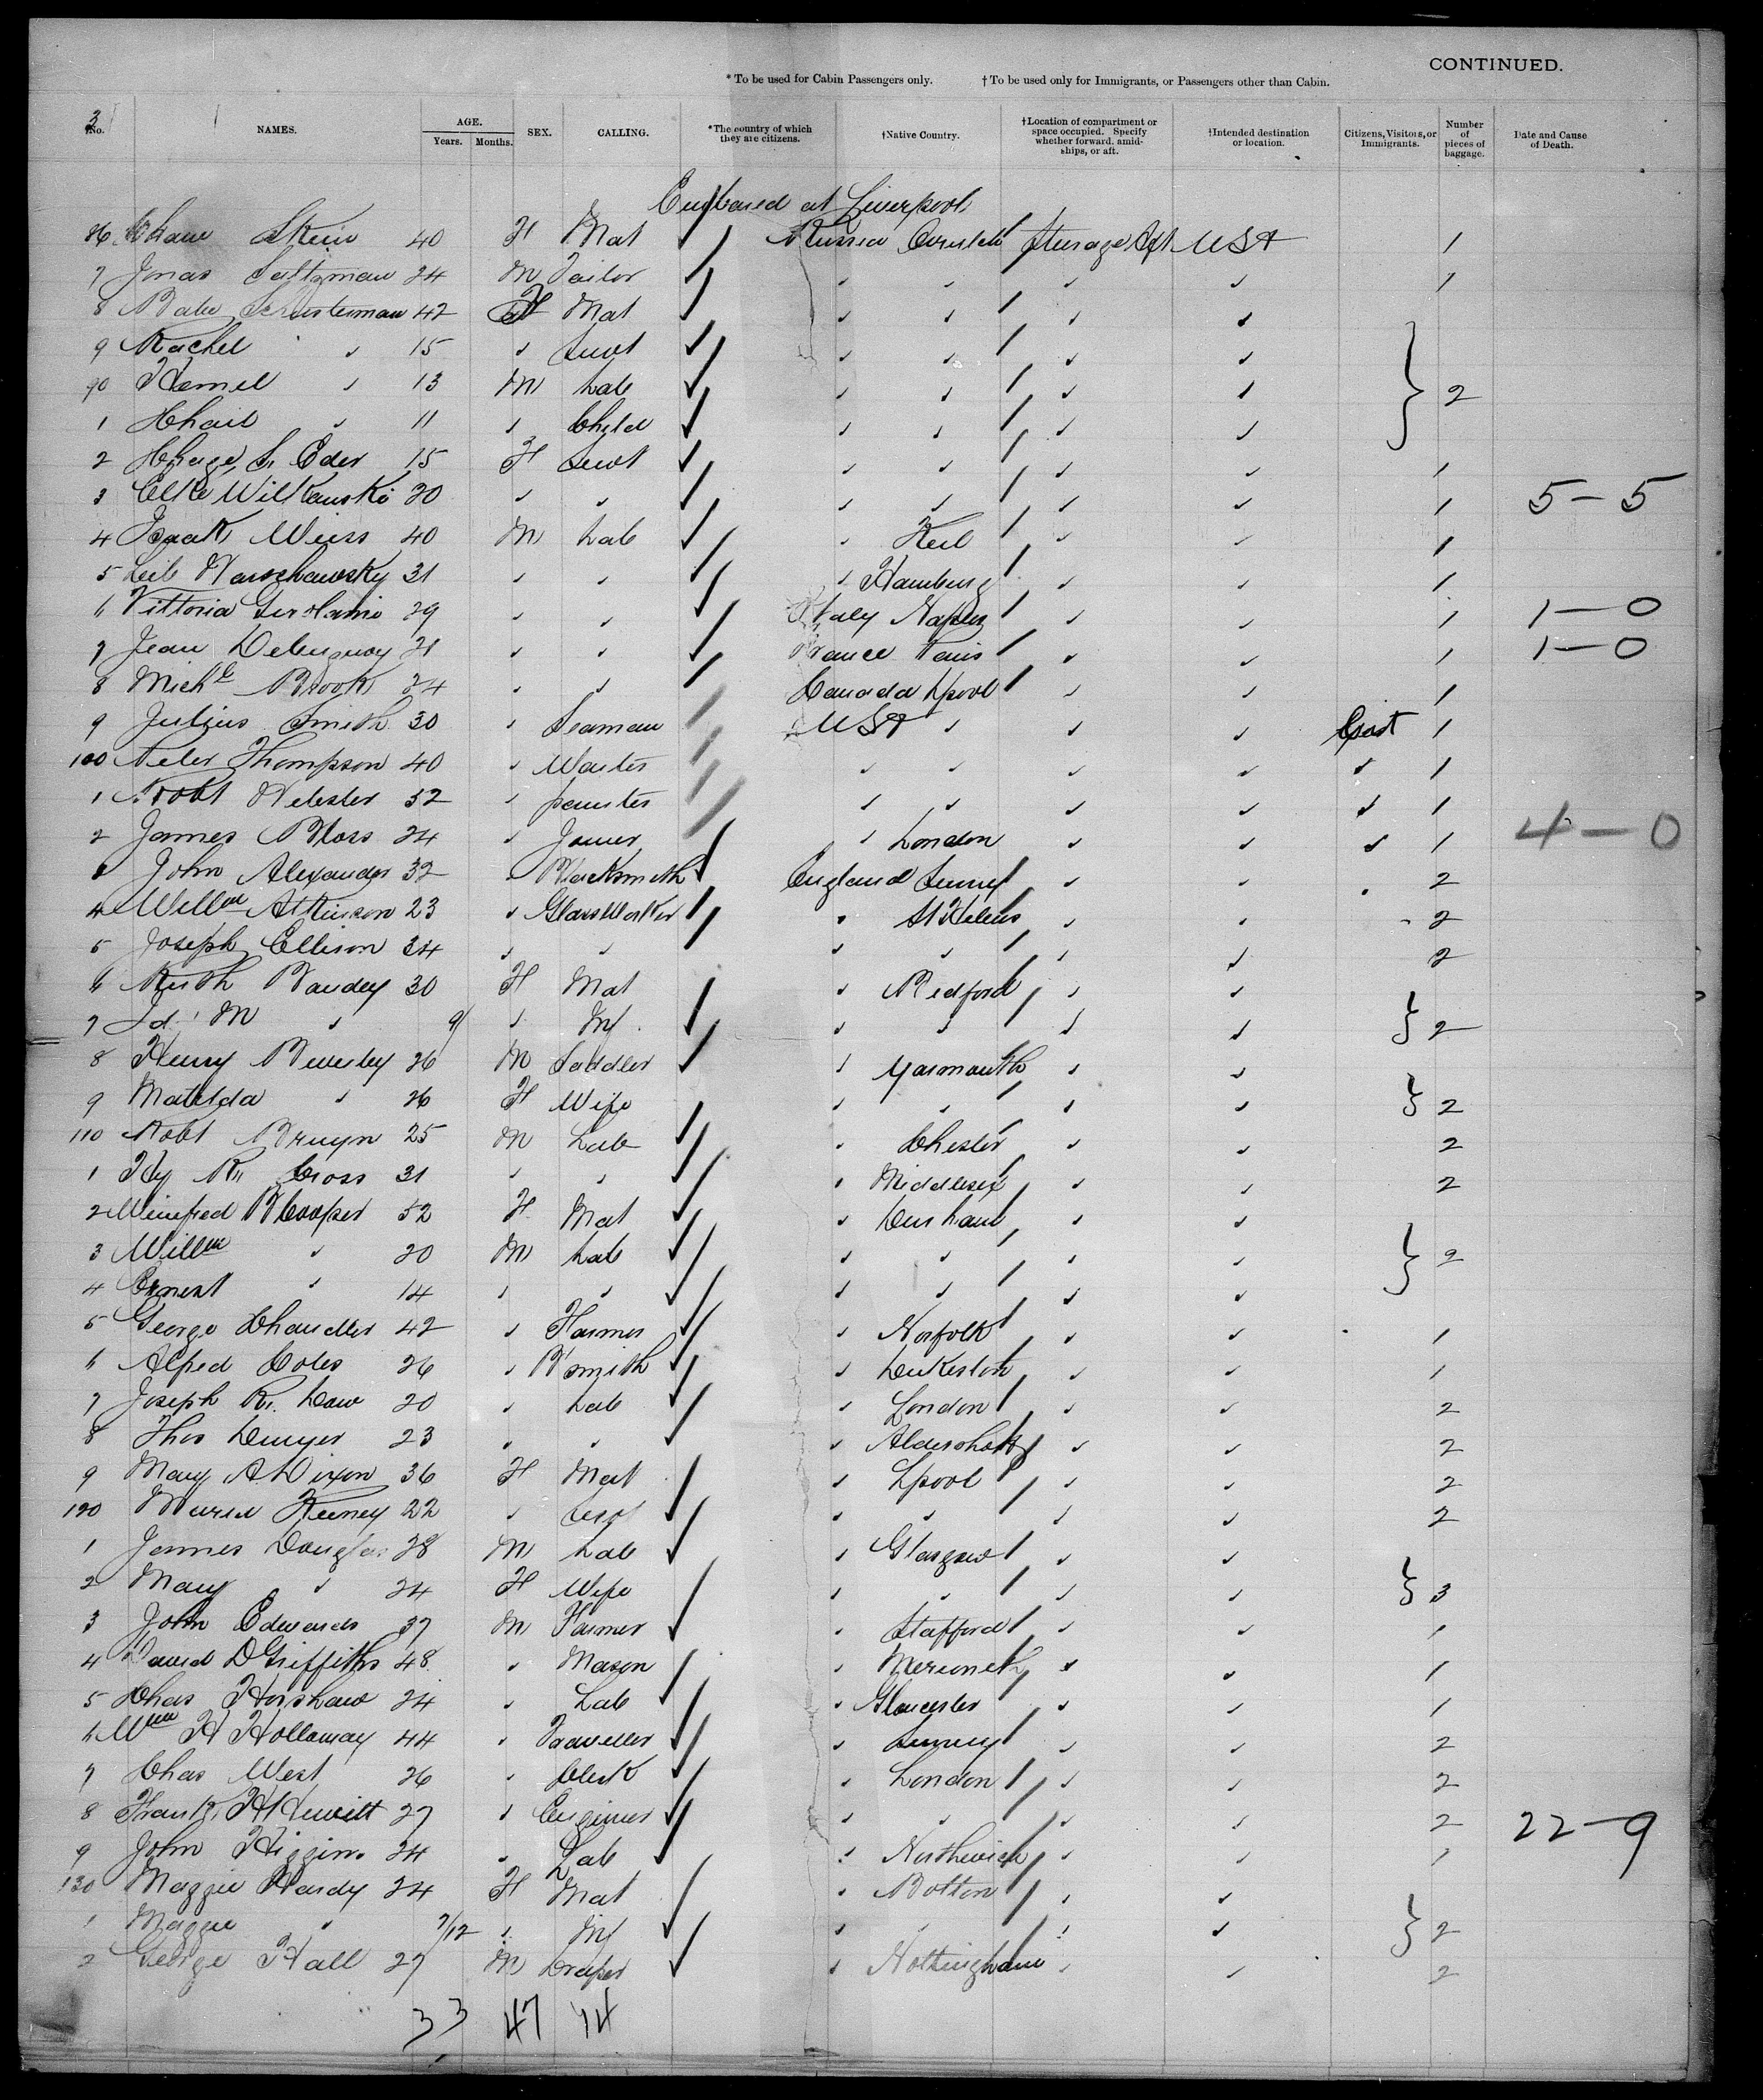 CONTINUED.
* To be used for Cabin Passengers only. † To be used only for Immigrants, or Passengers other than Cabin.
3
No. NAMES. AGE. Years. Months. SEX. CALLING. *The country of which they are citizens. †Native Country. †Location of compartment or space occupied. Specify whether forward, amidships, or aft. †Intended destination or location. Citizens, Visitors, or Immigrants. Number of pieces of baggage. Date and Cause of Death.
Embarked at Liverpool
86 Stein 40 F Mat Russia Steerage Aft USA 1
7 Saltzman 24 M Tailor ✓ ✓ ✓ ✓ 1
8 42 F Mat ✓ ✓ ✓ ✓
9 Rachel ✓ 15 ✓ Servt ✓ ✓ ✓ ✓
90 ✓ 13 M Lab ✓ ✓ ✓ ✓ } 2
1 ✓ 11 ✓ Child ✓ ✓ ✓ ✓
2 Eder 15 F Servt ✓ ✓ ✓ ✓ 1
3 Elke Wilkanski 20 ✓ ✓ ✓ ✓ ✓ ✓ 1 5-5
4 Isaak Weiss 40 M Lab ✓ Kiel ✓ ✓ 1
5 Leib Warschawsky 31 ✓ ✓ ✓ Hamburg ✓ ✓ 1
6 Vittoria 29 ✓ ✓ Italy Naples ✓ ✓ 1 1-0
7 Jean 21 ✓ ✓ France Paris ✓ ✓ 1 1-0
8 Michl Brook 24 ✓ ✓ Canada Lpool ✓ ✓ 1
9 Julius Smith 30 ✓ Seaman USA ✓ ✓ ✓ 1
100 Peter Thompson 40 ✓ Waiter ✓ ✓ ✓ ✓ ✓ 1
1 Robt Webster 32 ✓ painter ✓ ✓ ✓ ✓ ✓ 1
2 James Bloss 24 ✓ Joiner ✓ London ✓ ✓ ✓ 1 4-0
3 John Alexander 32 ✓ Blacksmith England Surrey ✓ ✓ 2
4 Willm Atkinson 23 ✓ Glass Worker ✓ St Helens ✓ ✓ 2
5 Joseph Ellison 34 ✓ ✓ ✓ ✓ ✓ ✓ 2
6 Ruth 30 F Mat ✓ Bedford ✓ ✓
7 M ✓ 9/ ✓ Inf ✓ ✓ ✓ ✓ } 2
8 Henry 26 M Saddler ✓ Yarmouth ✓ ✓
9 Matilda ✓ 26 F Wife ✓ ✓ ✓ ✓ } 2
110 Robt Bruyn 25 M Lab ✓ Chester ✓ ✓ 2
1 Hy R. Cross 31 ✓ ✓ ✓ Middlesex ✓ ✓ 2
2 Winifred B Cooper 52 F Mat ✓ Durham ✓ ✓
3 Willm ✓ 20 M Lab ✓ ✓ ✓ ✓ } 2
4 Ernest ✓ 14 ✓ ✓ ✓ ✓ ✓ ✓
5 George Chandler 42 ✓ Farmer ✓ Norfolk ✓ ✓ 1
6 Alfred Coles 26 ✓ B'smith ✓ ✓ ✓ 1
7 Joseph R. Daw 20 ✓ Lab ✓ London ✓ ✓ 2
8 Thos Dwyer 23 ✓ ✓ ✓ Aldershot ✓ ✓ 2
9 Mary A Dixon 36 F Mat ✓ Lpool ✓ ✓ 2
120 22 ✓ Servt ✓ ✓ ✓ ✓ 2
1 James Douglas 28 M Lab ✓ Glasgow ✓ ✓
2 Mary ✓ 24 F Wife ✓ ✓ ✓ ✓ } 3
3 John Edwards 37 M Farmer ✓ Stafford ✓ ✓ 1
4 David D Griffiths 48 ✓ Mason ✓ Merioneth ✓ ✓ 1
5 Chas Henshaw 24 ✓ Lab ✓ Gloucester ✓ ✓ 1
6 Wm H Holloway 44 ✓ Traveller ✓ Surrey ✓ ✓ 2
7 Chas West 26 ✓ Clerk ✓ London ✓ ✓ 2
8 Frank H Hewitt 27 ✓ Engineer ✓ ✓ ✓ ✓ 2 22-9
9 John Higgins 24 ✓ Lab ✓ Northwich ✓ ✓ 1
130 Maggie Hardy 24 F Mat ✓ Bolton ✓ ✓
1 Maggie ✓ 7/12 ✓ Inf ✓ ✓ ✓ ✓ } 2
2 George Hall 27 M Draper ✓ Nottingham ✓ ✓ 2
33 47 14